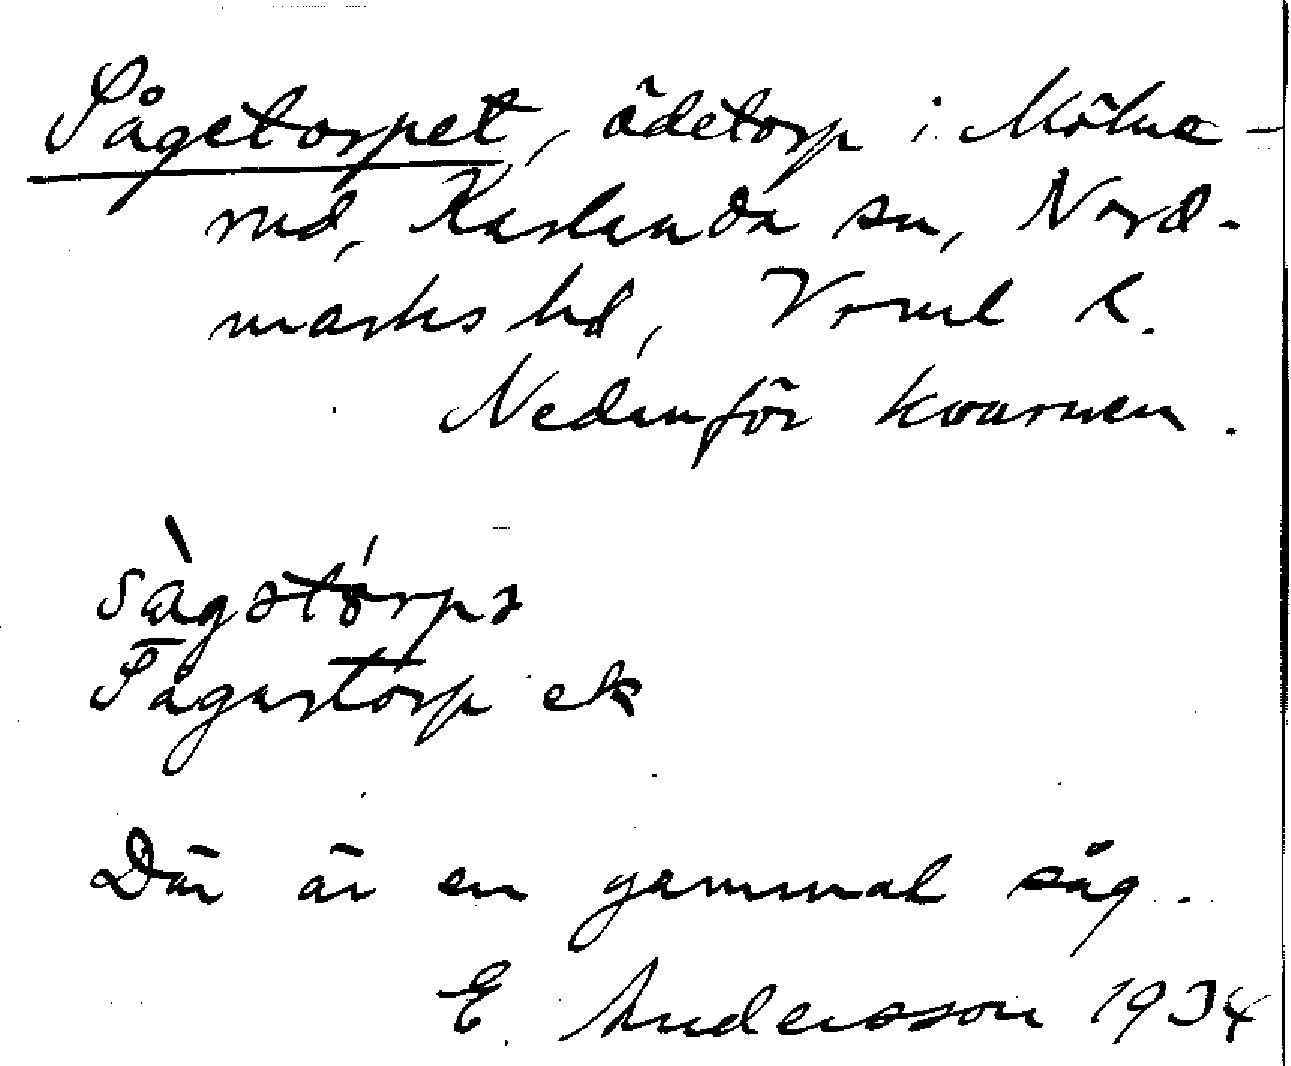 Sågetorpet, ödetorp i Mölne-
rud, Karlanda sn, Nord-
marks hd, Vrml l.
Nedanför kvarnen.
sàgstórpə
Sågarstorp ek
Där är en gammal såg.
E. Andersson 1934